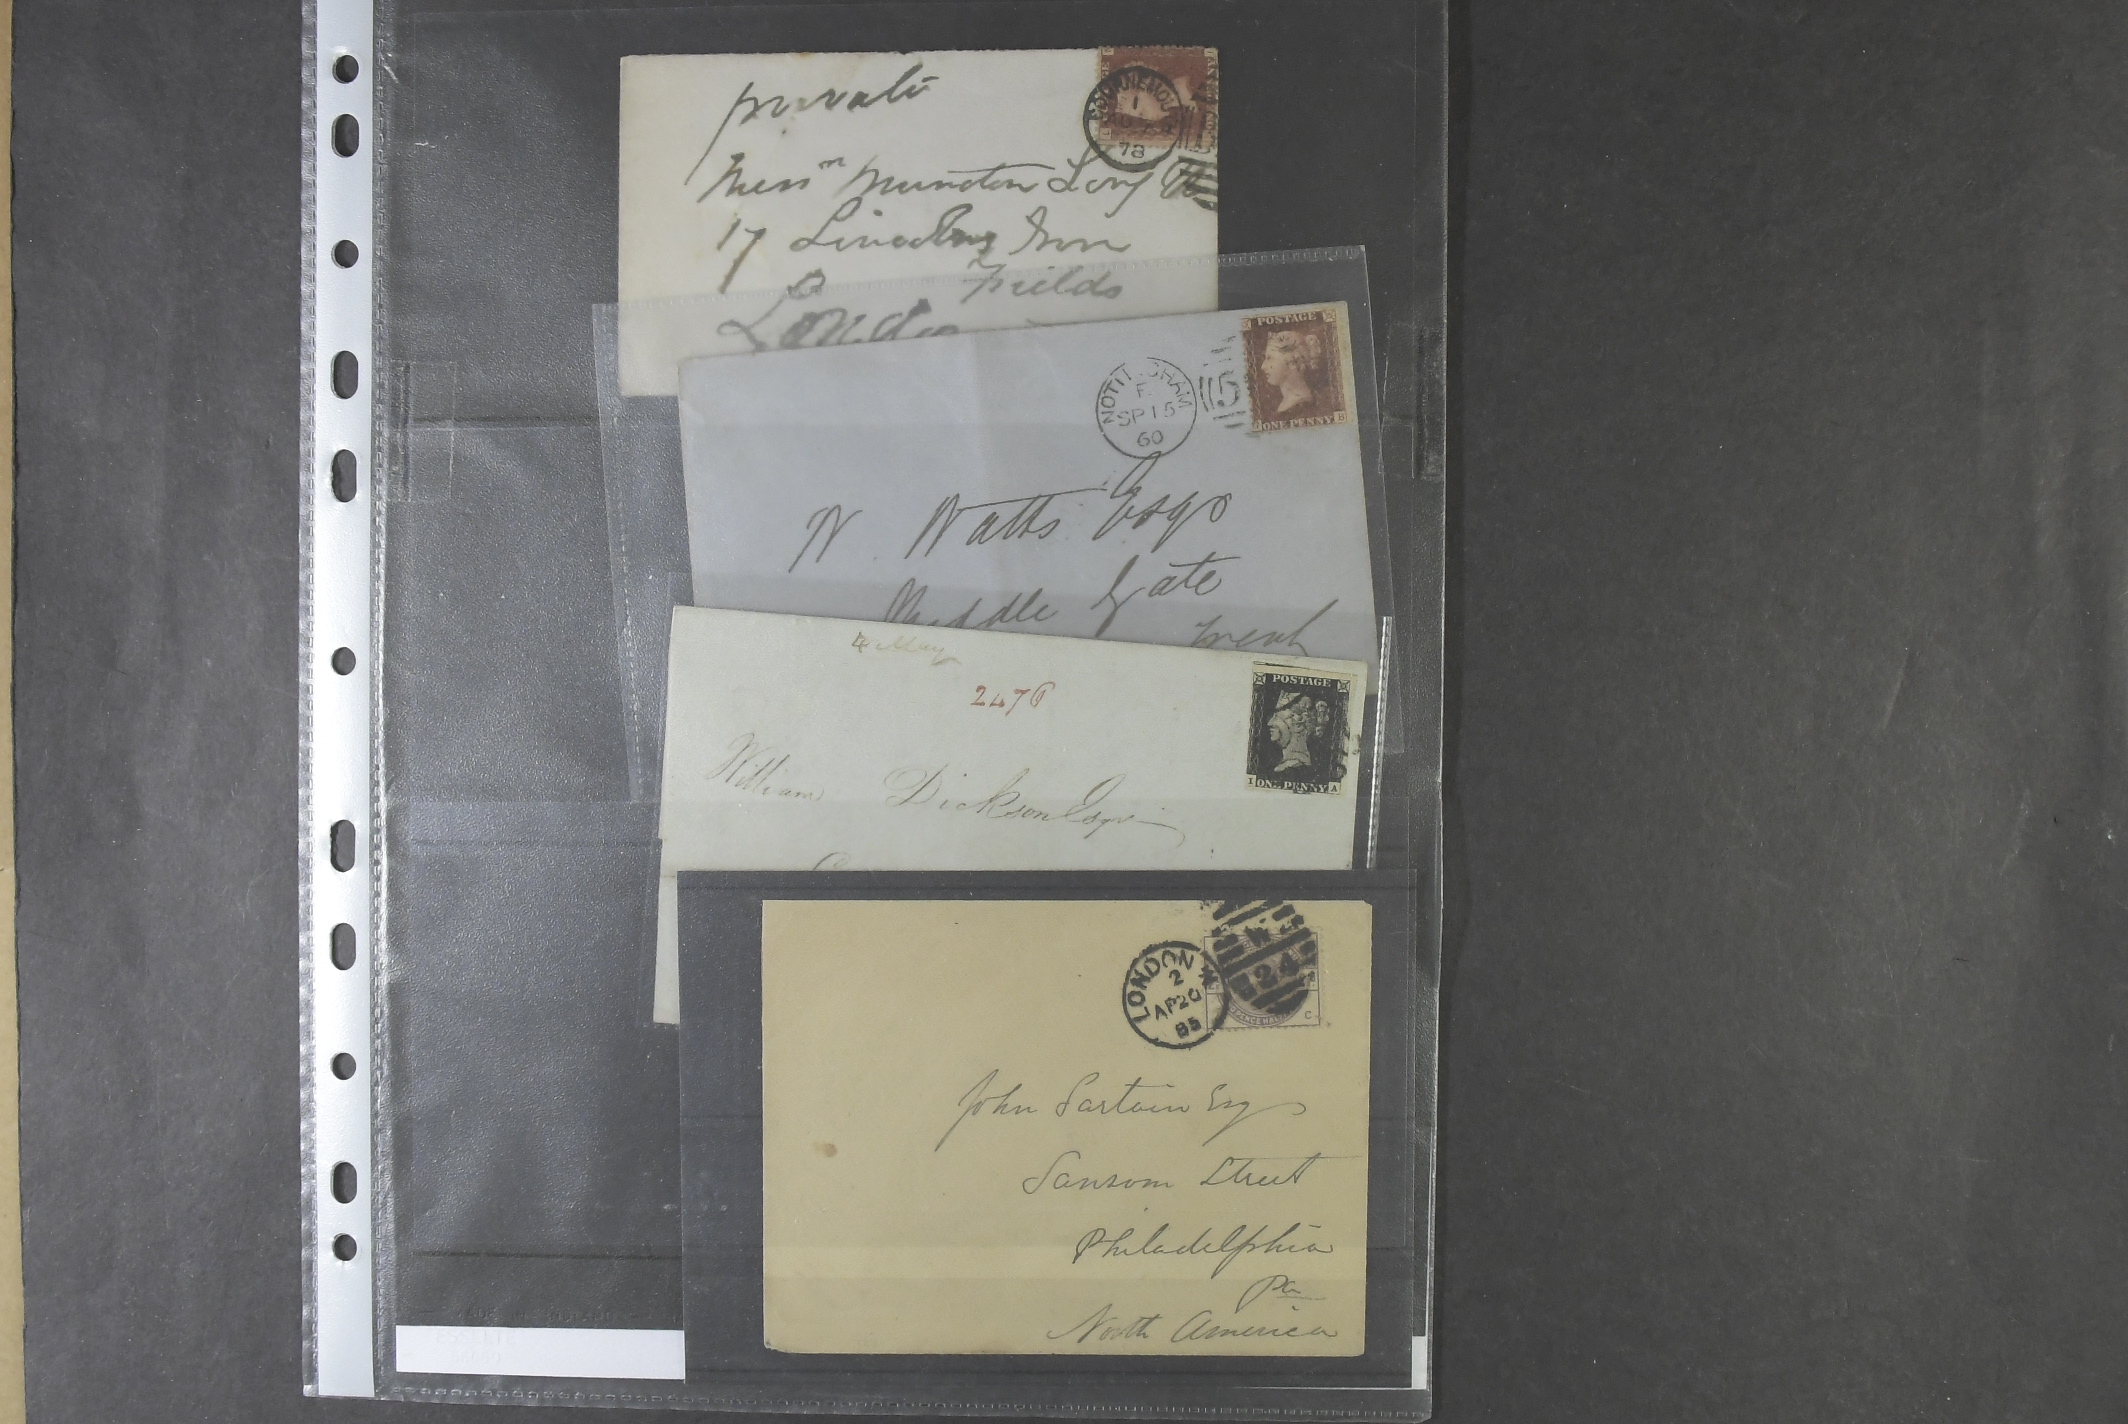 private
BOURNEMOU
1
78
Messrs Munton Long &
17 Lincolns Inn
Fields
London
POSTAGE
ONE PENNY B
NOTTINGHAM
F
SP 15
60
5
W. Watts Esqr
Middle Gate
POSTAGE
I ONE PENNY A
2476
William Dickson Esqr
LONDON W
2
AP 20
85
24
C
John Sartain Esq
Sansom Street
Philadelphia
Pa
North America